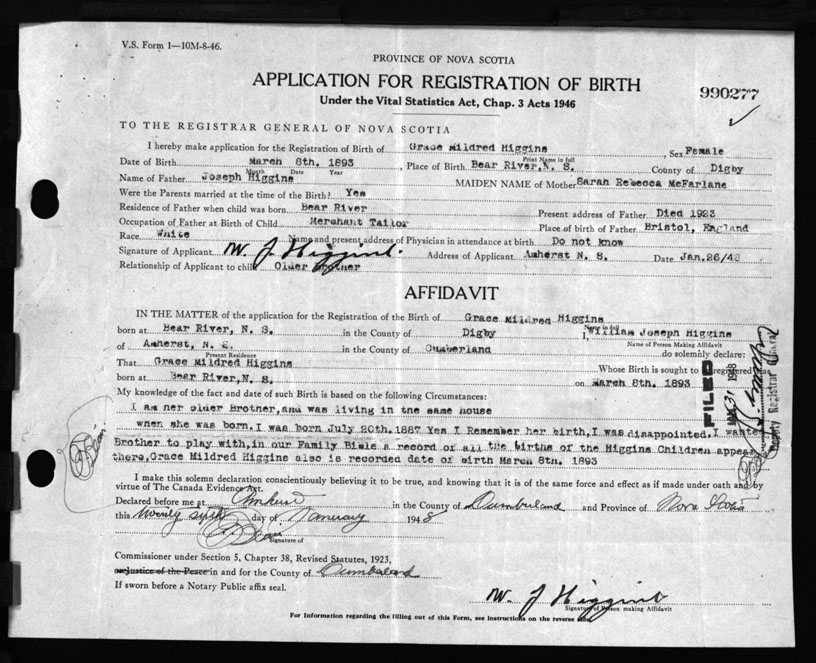 V.S. Form 1—10M-8-46.
PROVINCE OF NOVA SCOTIA
APPLICATION FOR REGISTRATION OF BIRTH
990277
Under the Vital Statistics Act, Chap. 3 Acts 1946
TO THE REGISTRAR GENERAL OF NOVA SCOTIA
I hereby make application for the Registration of Birth of Grace Mildred Higgins Sex Female
Print Name in full
Date of Birth March 8th. 1893, Place of Birth Bear River, N. S. County of Digby
Month Date Year
Name of Father Joseph Higgins MAIDEN NAME of Mother Sarah Rebecca McFarlane
Were the Parents married at the time of the Birth? Yes
Residence of Father when child was born Bear River Present address of Father Died 1923
Occupation of Father at Birth of Child Merchant Tailor Place of birth of Father Bristol, England
Race White Name and present address of Physician in attendance at birth Do not know
Signature of Applicant W. J. Higgins. Address of Applicant Amherst N. S. Date Jan.26/48
Relationship of Applicant to child Older Brother
AFFIDAVIT
IN THE MATTER of the application for the Registration of the Birth of Grace Mildred Higgins
born at Bear River, N. S. in the County of Digby I, William Joseph Higgins
Name in full
of Amherst, N. S. in the County of Cumberland do solemnly declare:
Present Residence
Name of Person Making Affidavit
That Grace Mildred Higgins Whose Birth is sought to be registered was
born at Bear River, N. S. on March 8th. 1893
My knowledge of the fact and date of such Birth is based on the following Circumstances:
I am her older Brother, and was living in the same house
when she was born. I was born July 20th. 1887 Yes I Remember her birth, I was disappointed, I wanted
Brother to play with, in our Family Bible a record of all the births of the Higgins Children appear
there, Grace Mildred Higgins also is recorded date of birth March 8th. 1893
FILED
1948
Deputy Registrar General
I make this solemn declaration conscientiously believing it to be true, and knowing that it is of the same force and effect as if made under oath and by
virtue of The Canada Evidence Act.
Declared before me at Amherst in the County of Cumberland and Province of Nova Scotia
this twenty sixth day of January 1948
Signature of
Commissioner under Section 5, Chapter 38, Revised Statutes, 1923,
or Justice of the Peace in and for the County of Cumberland
If sworn before a Notary Public affix seal.
W. J. Higgins
Signature of Person making Affidavit
For Information regarding the filling out of this Form, see instructions on the reverse side.